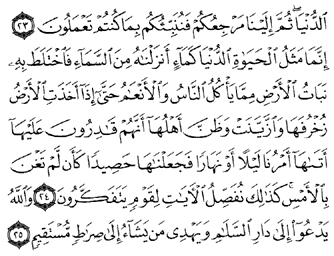 ٱلدُّنۡيَاۖ ثُمَّ إِلَيۡنَا مَرۡجِعُكُمۡ فَنُنَبِّئُكُم بِمَا كُنتُمۡ تَعۡمَلُونَ ٢٣
إِنَّمَا مَثَلُ ٱلۡحَيَوٰةِ ٱلدُّنۡيَا كَمَآءٍ أَنزَلۡنَٰهُ مِنَ ٱلسَّمَآءِ فَٱخۡتَلَطَ بِهِۦ
نَبَاتُ ٱلۡأَرۡضِ مِمَّا يَأۡكُلُ ٱلنَّاسُ وَٱلۡأَنۡعَٰمُ حَتَّىٰٓ إِذَآ أَخَذَتِ ٱلۡأَرۡضُ
زُخۡرُفَهَا وَٱزَّيَّنَتۡ وَظَنَّ أَهۡلُهَآ أَنَّهُمۡ قَٰدِرُونَ عَلَيۡهَآ
أَتَىٰهَآ أَمۡرُنَا لَيۡلًا أَوۡ نَهَارٗا فَجَعَلۡنَٰهَا حَصِيدٗا كَأَن لَّمۡ تَغۡنَ
بِٱلۡأَمۡسِۚ كَذَٰلِكَ نُفَصِّلُ ٱلۡأٓيَٰتِ لِقَوۡمٖ يَتَفَكَّرُونَ ٢٤ وَٱللَّهُ
يَدۡعُوٓاْ إِلَىٰ دَارِ ٱلسَّلَٰمِ وَيَهۡدِي مَن يَشَآءُ إِلَىٰ صِرَٰطٖ مُّسۡتَقِيمٖ ٢٥